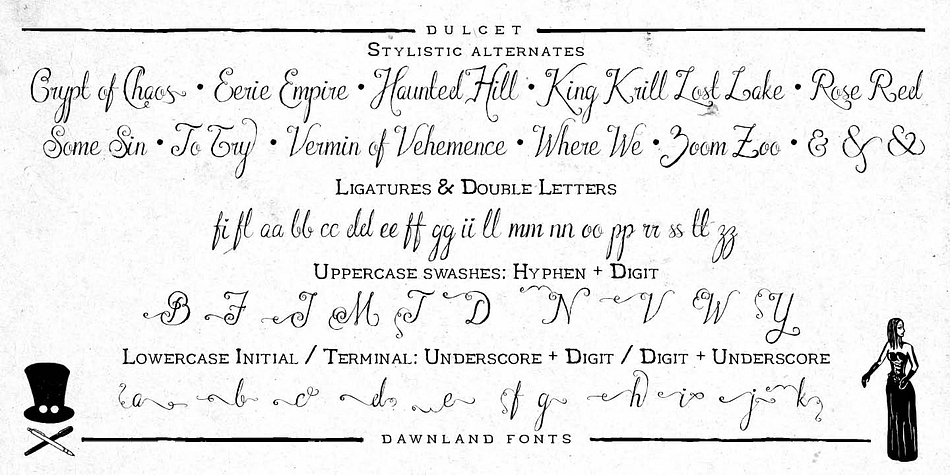 DULCET
STYLISTIC ALTERNATES
Crypt of Chaos • Eerie Empire • Haunted Hill • King Krill Lost Lake • Rose Red
Some Sin • To Try • Vermin of Vehemence • Where We • Zoom Zoo • & & &
LIGATURES & DOUBLE LETTERS
fi fl aa bb cc dd ee ff gg ii ll mm nn oo pp rr ss tt zz
UPPERCASE SWASHES: HYPHEN + DIGIT
B F I M T D N V W Y
LOWERCASE INITIAL / TERMINAL: UNDERSCORE + DIGIT / DIGIT + UNDERSCORE
a b c d e f g h i x j k
DAWNLAND FONTS